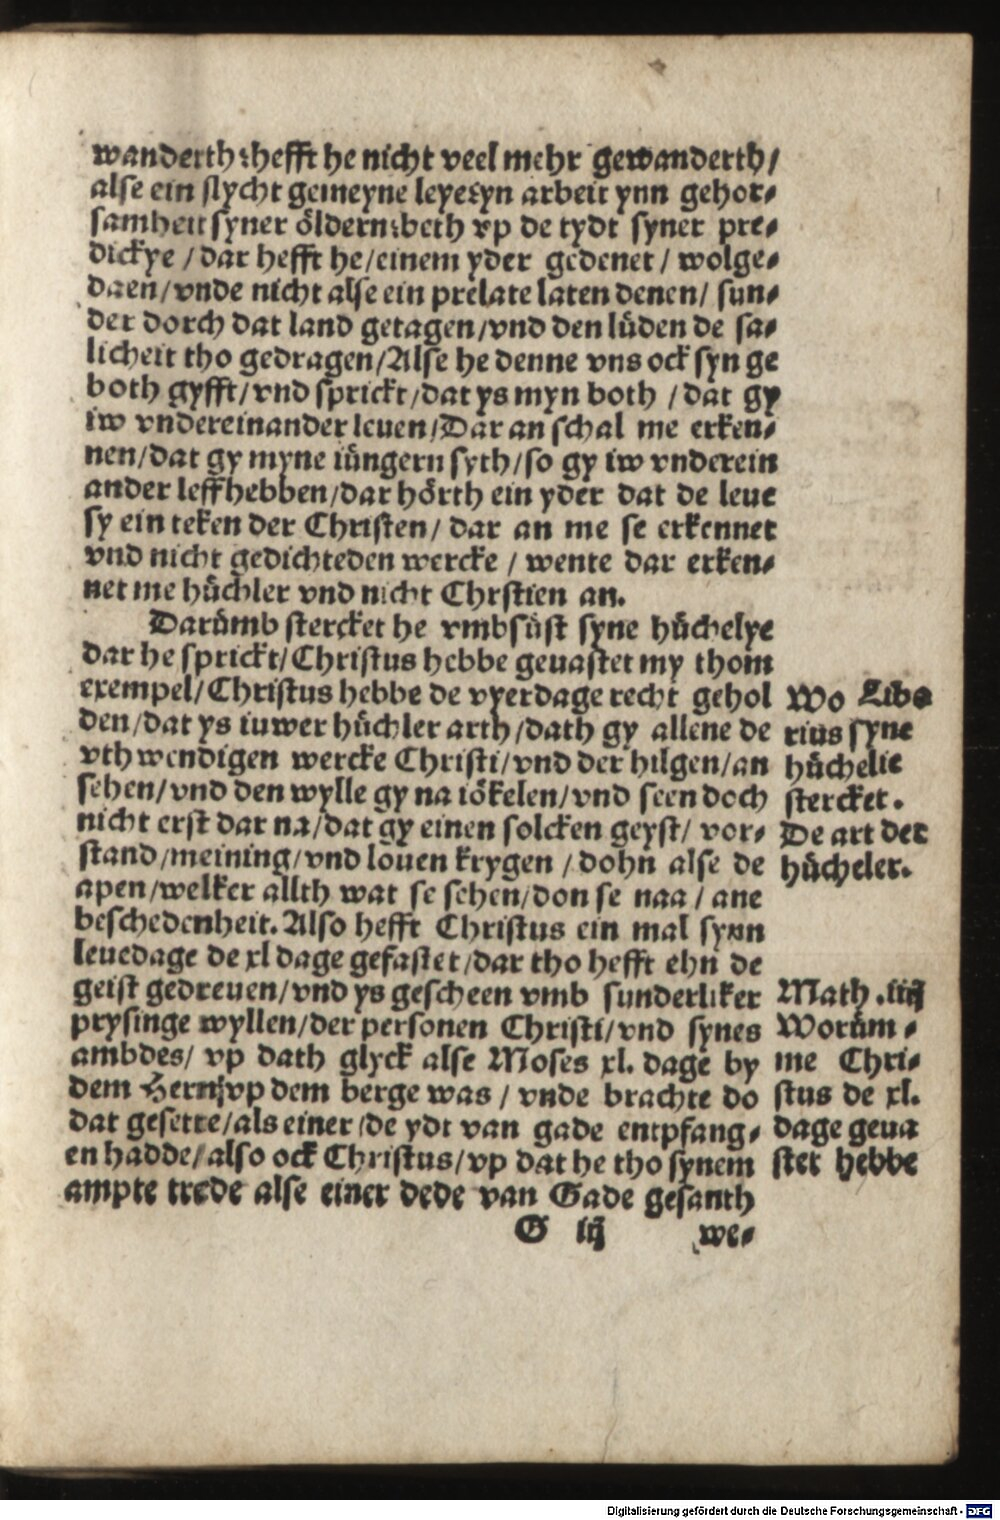 wanderth: hefft he nicht veel mehr gewanderth/
alse ein slycht gemeyne leye: yn arbeit ynn gehor-
samheit syner öldern: beth vp de tydt syner pre-
dickye / dar hefft he/einem yder gedenet / wolge-
daen/vnde nicht alse ein prelate laten denen/ sun-
der dorch dat land getagen/vnd den lüden de sa-
licheit tho gedragen/Alse he denne vns ock syn ge
both gyfft/vnd sprickt/dat ys myn both / dat gy
iw vndereinander leuen/Dar an schal me erken-
nen/dat gy myne iüngern syth/so gy iw vnderein
ander leff hebben/dar hörth ein yder dat de leue
sy ein teken der Christen/ dar an me se erkennet
vnd nicht gedichteden wercke / wente dar erken-
net me hüchler vnd nicht Chrstien an.
Darümb stercket he vmbsüst syne hüchelye
dar he sprickt/Christus hebbe geuastet my thom
exempel/Christus hebbe de vyerdage recht gehol
den/dat ys iuwer hüchler arth/dath gy allene de
vthwendigen wercke Christi/vnd der hilgen/an
sehen/vnd den wylle gy na iökelen/vnd seen doch
nicht erst dar na/dat gy einen solcken geyst/ vor-
stand/meining/vnd louen krygen / dohn alse de
apen/welker allth wat se sehen/don se naa / ane
beschedenheit. Also hefft Christus ein mal synn
leuedage de xl dage gefastet/dar tho hefft ehn de
geist gedreuen/vnd ys gescheen vmb sunderliker
prysinge wyllen/der personen Christi/vnd synes
ambdes/ vp dath glyck alse Moses xl. dage by
dem Hern/vp dem berge was / vnde brachte do
dat gesette/als einer/de ydt van gade entpfang-
en hadde/also ock Christus/vp dat he tho synem
ampte trede alse einer dede van Gade gesanth
G iij we-
Wo Liba
rius syne
hüchelie
stercket.
De art der
hücheler.
Math. iiij
Worüm-
me Chri-
stus de xl.
dage geua
stet hebbe
Digitalisierung gefördert durch die Deutsche Forschungsgemeinschaft - DFG